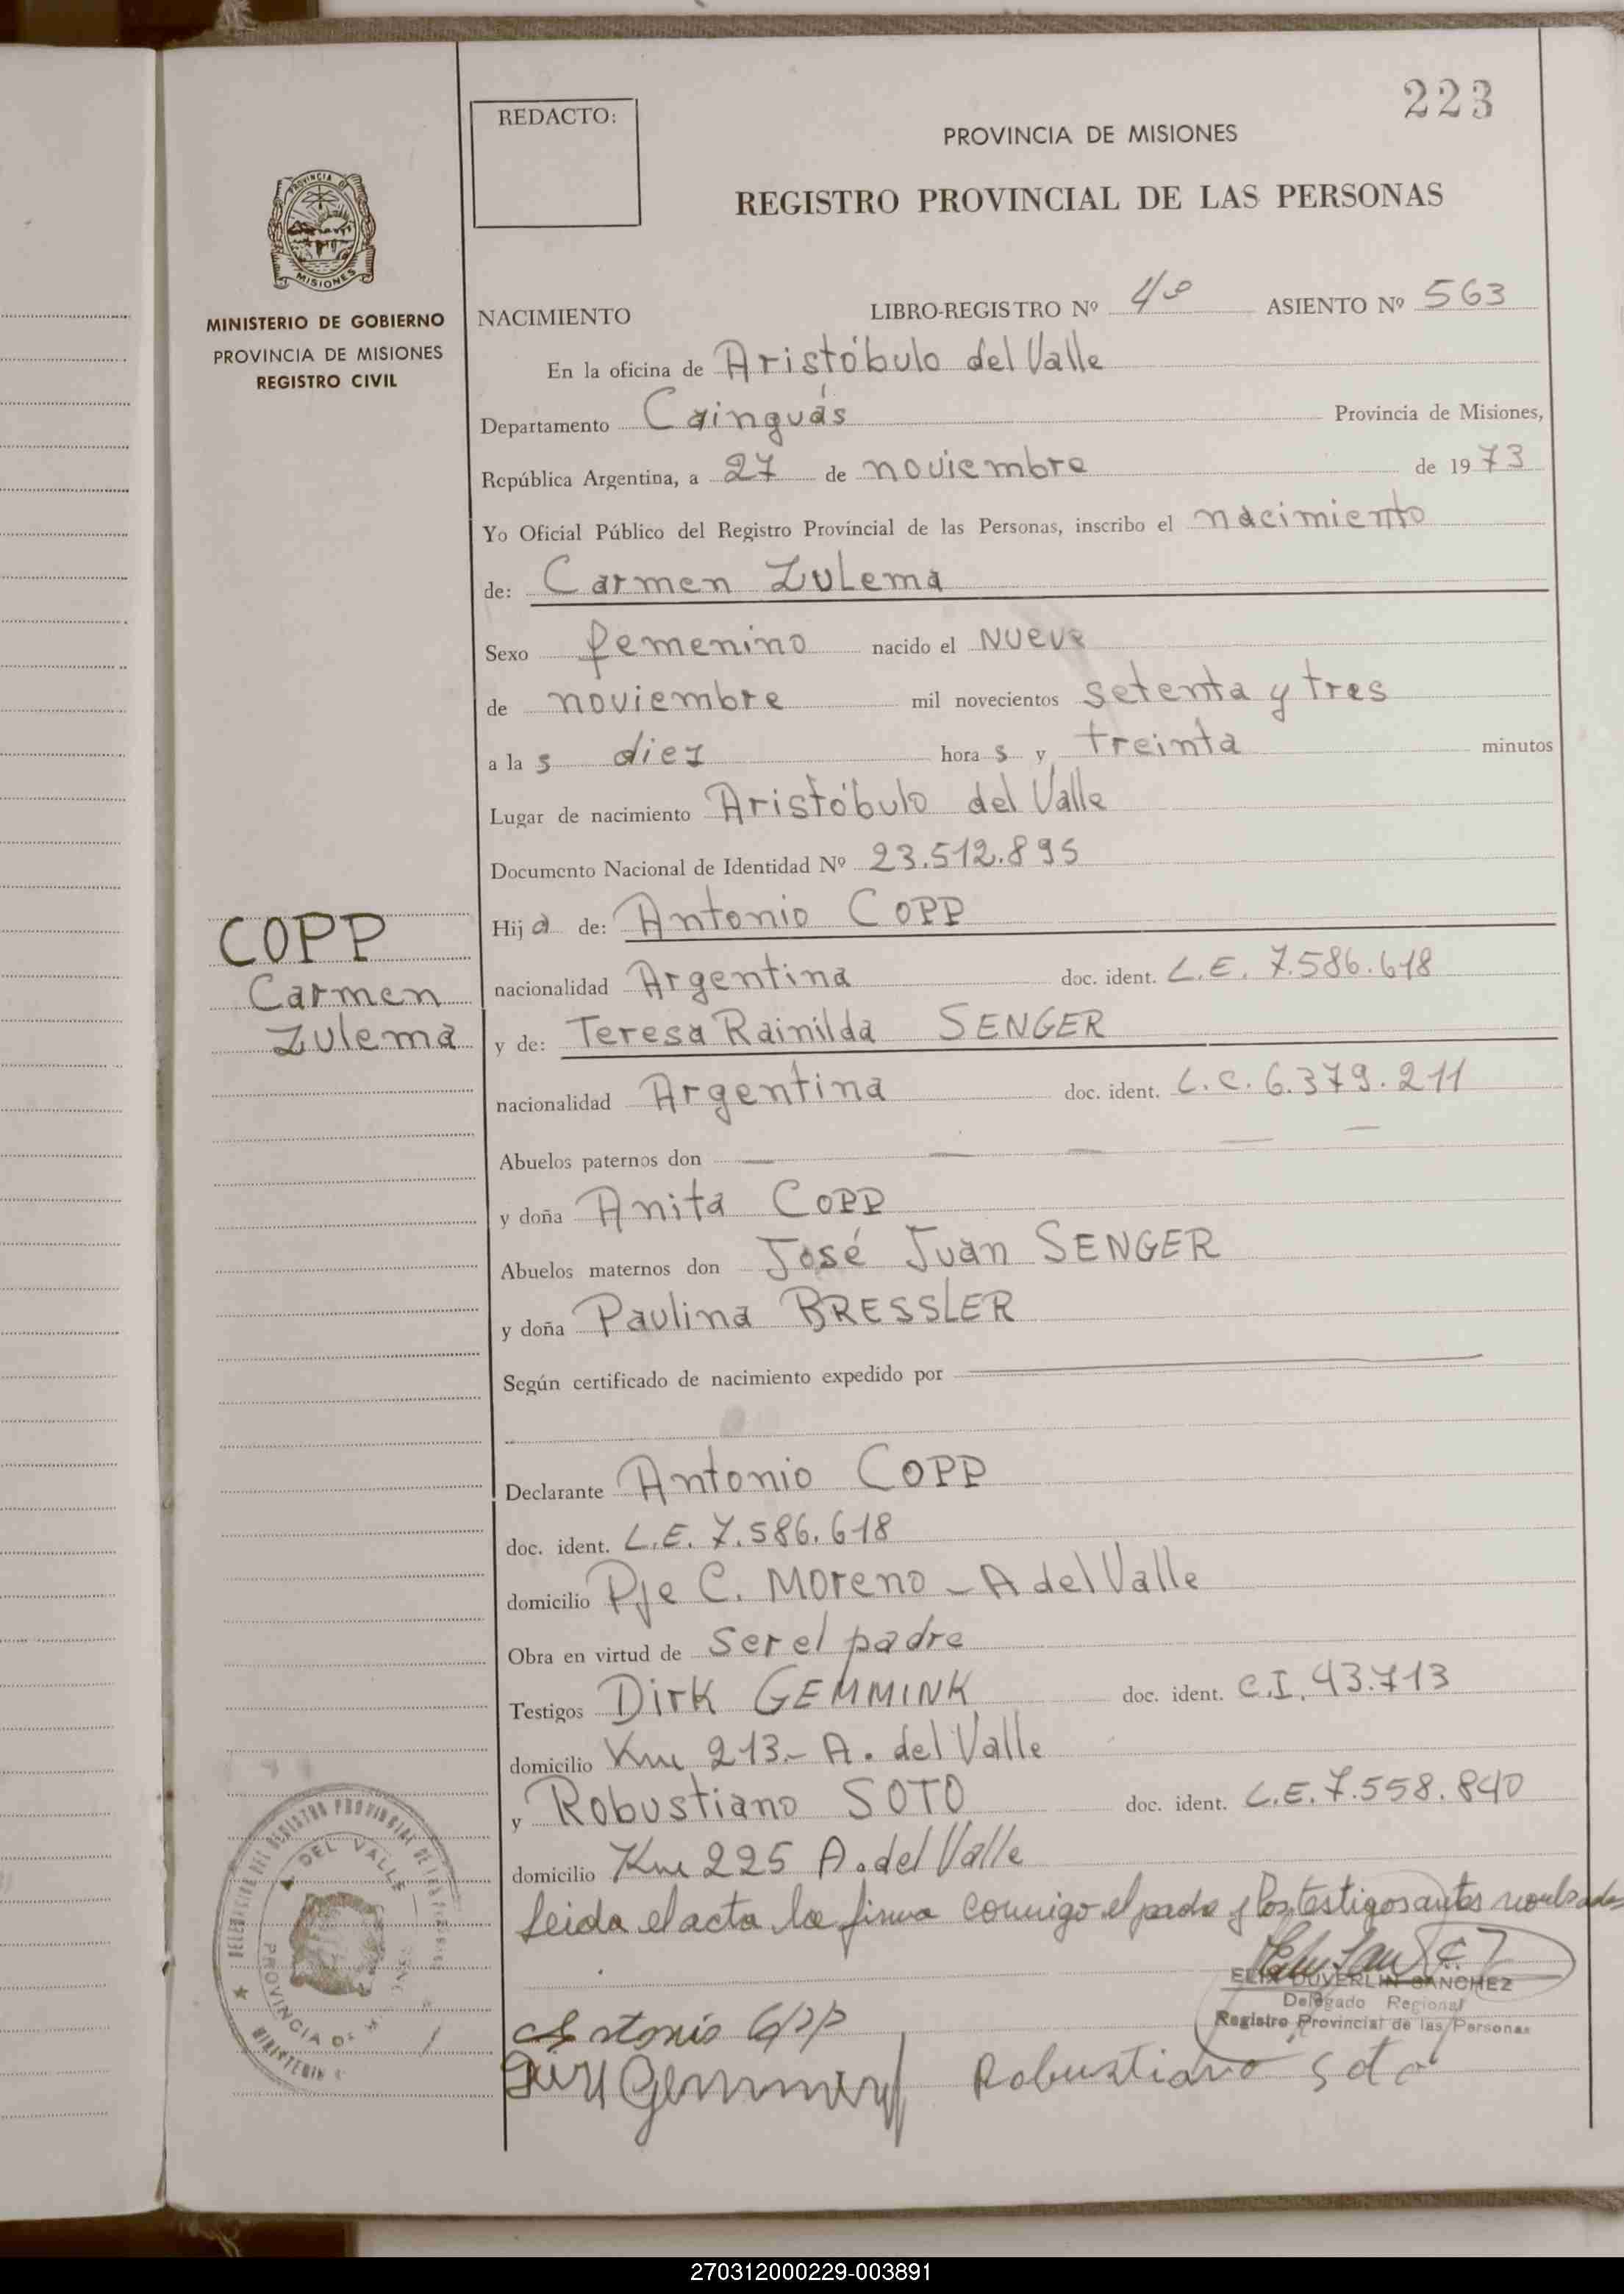 223
REDACTO:
PROVINCIA DE MISIONES
REGISTRO PROVINCIAL DE LAS PERSONAS
PROVINCIA DE
MISIONES
MINISTERIO DE GOBIERNO
PROVINCIA DE MISIONES
REGISTRO CIVIL
NACIMIENTO LIBRO-REGISTRO Nº 4º ASIENTO Nº 563
En la oficina de Aristóbulo del Valle
Departamento Cainguás Provincia de Misiones,
República Argentina, a 27 de noviembre de 1973
Yo Oficial Público del Registro Provincial de las Personas, inscribo el nacimiento
de: Carmen Zulema
Sexo femenino nacido el nueve
de noviembre mil novecientos setenta y tres
a la s diez hora s y treinta minutos
Lugar de nacimiento Aristóbulo del Valle
Documento Nacional de Identidad Nº 23.512.895
COPP
Carmen
Zulema
Hij a de: Antonio COPP
nacionalidad Argentina doc. ident. L.E. 7.586.618
y de: Teresa Rainilda SENGER
nacionalidad Argentina doc. ident. L.C. 6.379.211
Abuelos paternos don — — — — —
y doña Anita COPP
Abuelos maternos don José Juan SENGER
y doña Paulina BRESSLER
Según certificado de nacimiento expedido por
Declarante Antonio COPP
doc. ident. L.E. 7.586.618
domicilio Pje C. Moreno - A del Valle
Obra en virtud de ser el padre
Testigos Dirk GEMMINK doc. ident. C.I. 43.713
domicilio Km 213.- A. del Valle
y Robustiano SOTO doc. ident. L.E. 7.558.840
domicilio Km 225 A. del Valle
Leida el acta la firma conmigo el padre y los testigos antes nombrados
ELIX DUVERLIN SANCHEZ
Delegado Regional
Registro Provincial de las Personas
Antonio Copp
Dirk Gemmink Robustiano Soto
DELEGACION DEL REGISTRO PROVINCIAL DE LAS PERSONAS
A. DEL VALLE
PROVINCIA DE
MINISTERIO
270312000229-003891